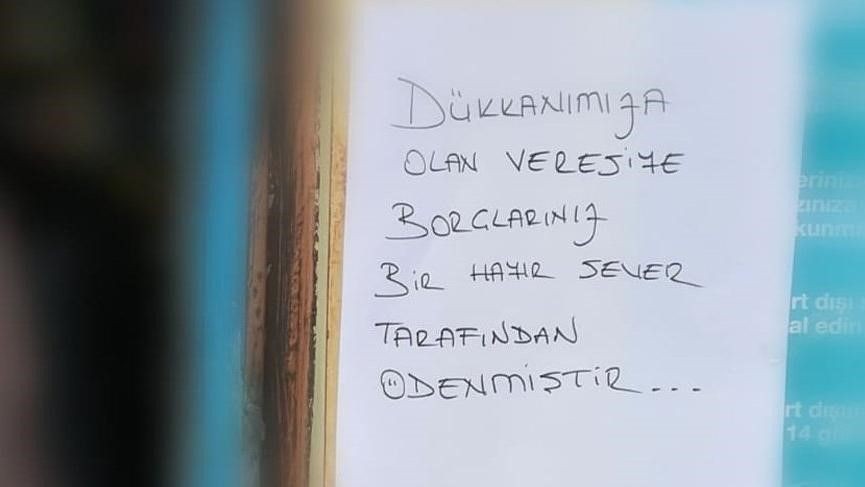 DÜKKANIMIZA
OLAN VERESİYE
BORÇLARINIZ
BİR HAYIR SEVER
TARAFINDAN
ÖDENMİŞTİR...
kunm
rt dışı
al edin
rt dışı
14 g